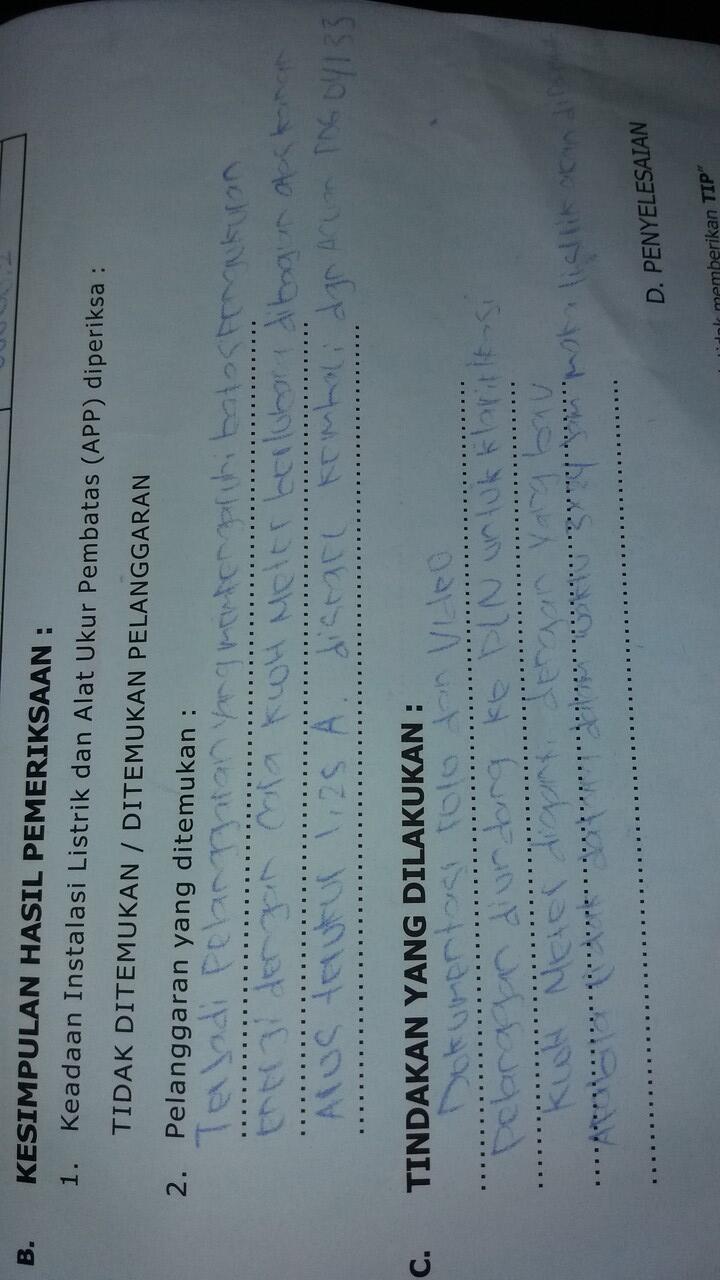 B. KESIMPULAN HASIL PEMERIKSAAN :
1. Keadaan Instalasi Listrik dan Alat Ukur Pembatas (APP) diperiksa :
TIDAK DITEMUKAN / DITEMUKAN PELANGGARAN
2. Pelanggaran yang ditemukan :
Terjadi Pelanggaran yang mempengaruhi batas pengukuran
Energi dengan cara KWH Meter berlubang dibagian atas kanan
Arus terukur 1,25 A. disegel kembali dgn Acian
C. TINDAKAN YANG DILAKUKAN :
Dokumentasi Foto dan Video
Pelanggan diundang ke PLN untuk klarifikasi
KWH Meter diganti dengan yang baru
Apabila tidak datang dalam waktu 3x24 Jam maka listrik akan
D. PENYELESAIAN
memberikan TIP"